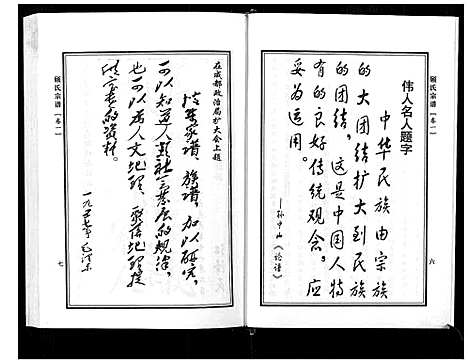 顾氏宗谱【卷一】
伟人名人题字
中华民族由宗族
的大团结扩大到民族
的团结，这是中国人特
有的良好传统观念。应
妥为运用。
——孙中山《论谱》
六
在成都政治局扩大会上题
收集家谱、族谱，加以研究，
可以知道人类社会发展的规律，
也可以为人文地理、聚落地理提
供宝贵的资料。
一九五七年 毛泽东
七
顾氏宗谱【卷一】